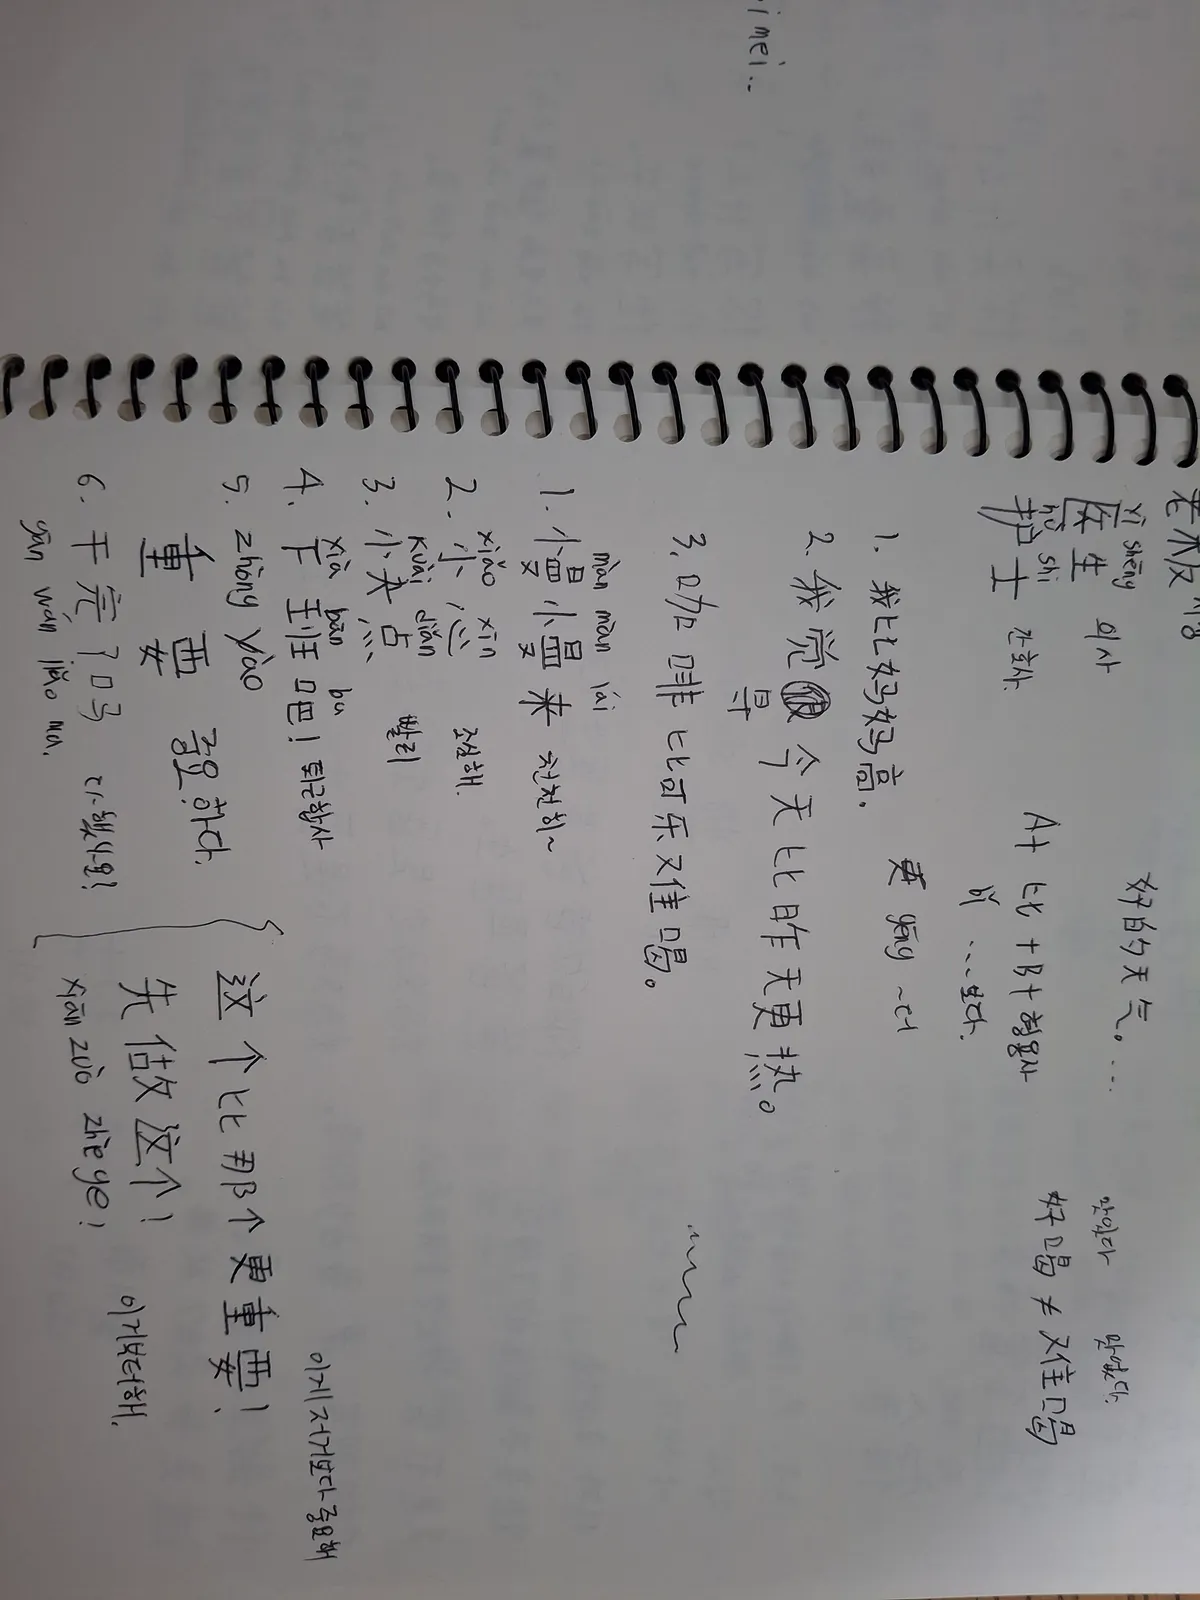 imei..
老板 사장
yī shēng
医生 의사
hù shi
护士 간호사.
好的天气。...
A+ 比 + B + 형용사
비 ...보다.
맛있다 맛없다.
好喝 ≠ 难喝
1. 我比妈妈高.
更 gēng ~더
2. 我觉得 今天比昨天更热。
3. 咖啡比可乐难喝。
màn màn lái
1. 慢慢来 천천히~
xiǎo xīn
2. 小心 조심해.
kuài diǎn
3. 快点 빨리
xià bān ba
4. 下班吧! 퇴근합시다
5. zhòng yào
重要 중요하다.
6. 干完了吗 다했나요!
gān wán liǎo ma.
이게 저거보다 중요해
这个比那个更重要!
先做这个!
xiān zuò zhè ge!
이거부터해.